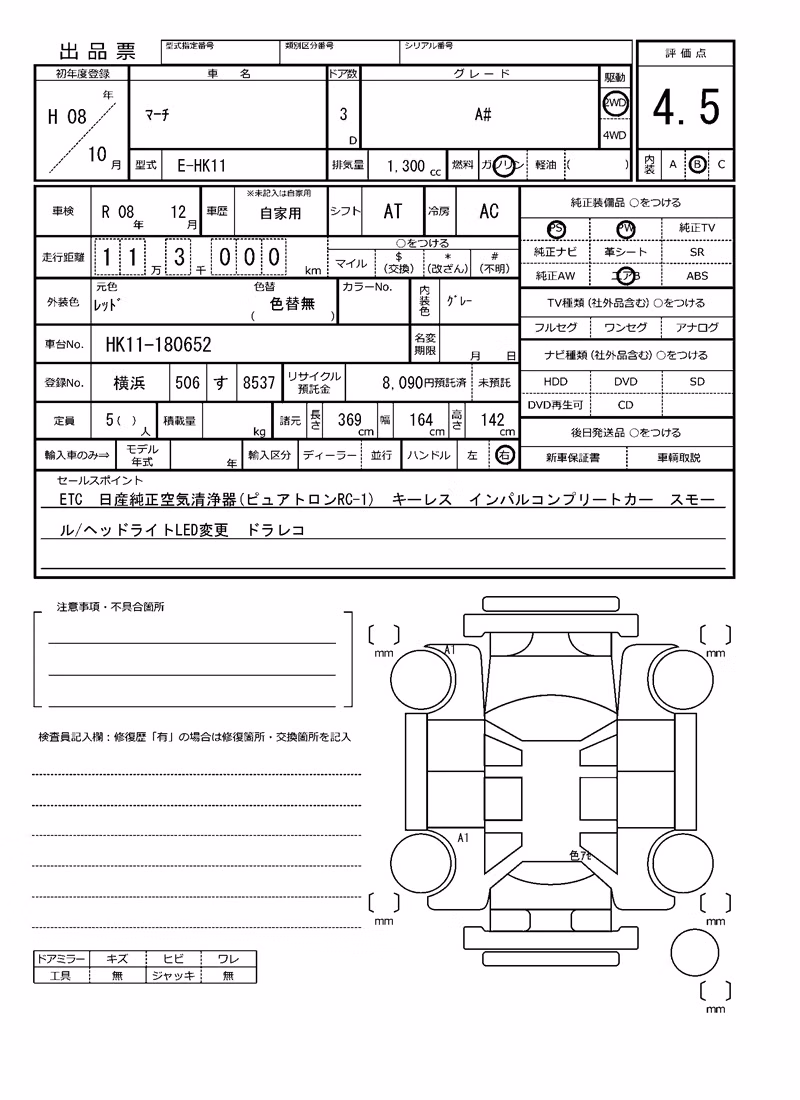 出品票
型式指定番号 類別区分番号 シリアル番号
評価点
4.5
内装 A B C
初年度登録 車名 ドア数 グレード 駆動
H 08 年 10 月 マーチ 3 D A# 2WD
4WD
型式 E-HK11 排気量 1,300 cc 燃料 ガソリン 軽油 ( )
車検 R 08 年 12 月 車歴 ※未記入は自家用 自家用 シフト AT 冷房 AC
走行距離 11 万 3 千 000 km
○をつける
マイル $ (交換) * (改ざん) # (不明)
外装色 元色 レッド 色替 ( 色替無 ) カラーNo. 内装色 グレー
車台No. HK11-180652 名変期限 月 日
登録No. 横浜 506 す 8537 リサイクル預託金 8,090円預託済 未預託
定員 5( ) 人 積載量 kg 諸元 長さ 369 cm 幅 164 cm 高さ 142 cm
輸入車のみ⇒ モデル年式 年 輸入区分 ディーラー 並行 ハンドル 左 右
純正装備品 ○をつける
PS PW 純正TV
純正ナビ 革シート SR
純正AW エアB ABS
TV種類(社外品含む)○をつける
フルセグ ワンセグ アナログ
ナビ種類(社外品含む)○をつける
HDD DVD SD
DVD再生可 CD
後日発送品 ○をつける
新車保証書 車輌取説
セールスポイント
ETC 日産純正空気清浄器(ピュアトロンRC-1) キーレス インパルコンプリートカー スモー
ル/ヘッドライトLED変更 ドラレコ
注意事項・不具合箇所
検査員記入欄:修復歴「有」の場合は修復箇所・交換箇所を記入
mm mm
A1
A1
色アセ
mm mm
mm
ドアミラー キズ ヒビ ワレ
工具 無 ジャッキ 無